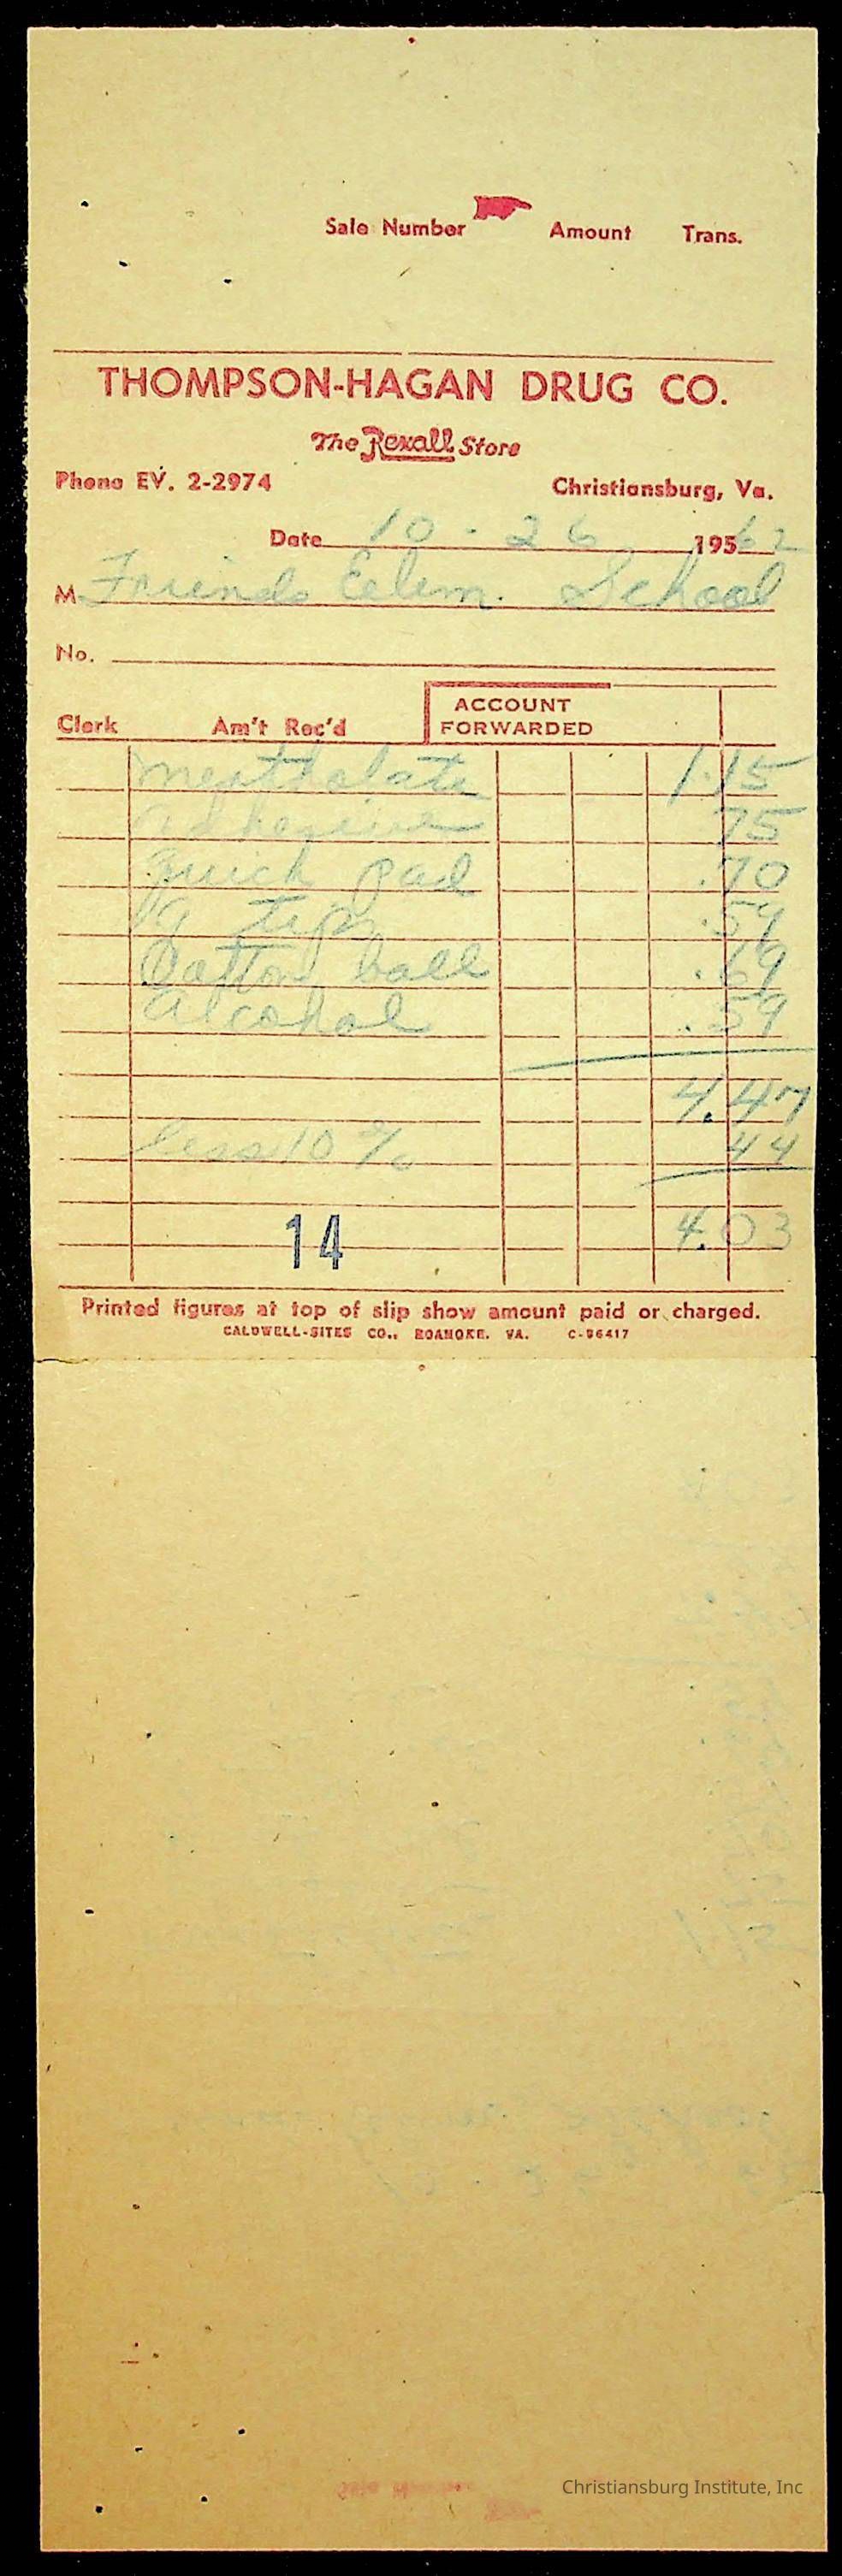 Sale Number Amount Trans.
THOMPSON-HAGAN DRUG CO.
The Rexall Store
Phone EV. 2-2974 Christiansburg, Va.
Date 10 - 26 195 62
M Friends Eelem. School
No.
ACCOUNT
Clerk Am't Rec'd FORWARDED
merthiolate 1.15
adhesive 75
quick pad .70
Q tip .59
Cotton ball .69
alcohol .59
4.47
less 10 % 44
14 4.03
Printed figures at top of slip show amount paid or charged.
CALDWELL-SITES CO., ROANOKE, VA. C-96417
Christiansburg Institute, Inc